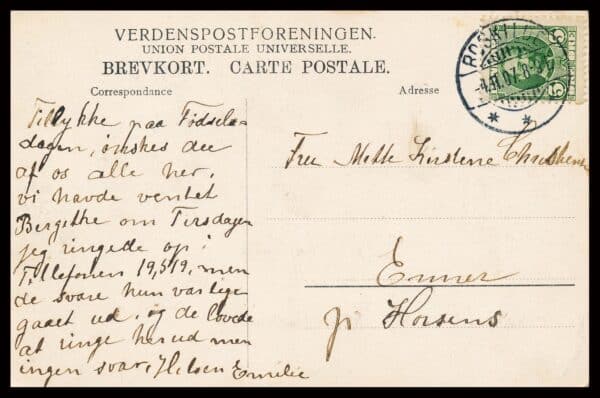 VERDENSPOSTFORENINGEN.
UNION POSTALE UNIVERSELLE.
BREVKORT. CARTE POSTALE.
Correspondance
Adresse
ROSKI
5
5
Tillykke paa Fødsels-
dagen, ønskes dee
af os alle her,
vi havde ventet
Bergette om Tirsdagen
jeg ringede op i
Tillefonen 19,519, men
de svare hun var lige
gaaet ud, og de lovede
at ringe her ud men
ingen svar, Hilsen Emilie
Fru Mette Kirstene Christensen
Enner
pr Horsens